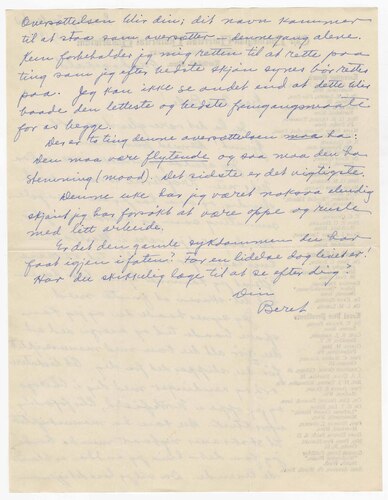 Oversættelsen blir din; dit navn kommer
til at staa som oversætter — dennegang alene.
Kun forbeholder jeg mig retten til at rette paa
ting som jeg efter bedste skjøn synes bør rettes
paa. Jeg kan ikke se andet end at dette blir
baade den letteste og bedste fremgangsmaate
for os begge.
Der er to ting denne oversættelsen maa ha:
Den maa være flytende og saa maa den ha
stemning (mood). Det sidste er det vigtigste.
Denne uke har jeg været nokså elendig
skjønt jeg har forsøkt at være oppe og rusle
med litt arbeide.
Er det den gamle sykdommen du har
faat igjen i foten? For en lidelse dog livet er!
Har du skikkelig læge til at se efter dig?
Din
Beret